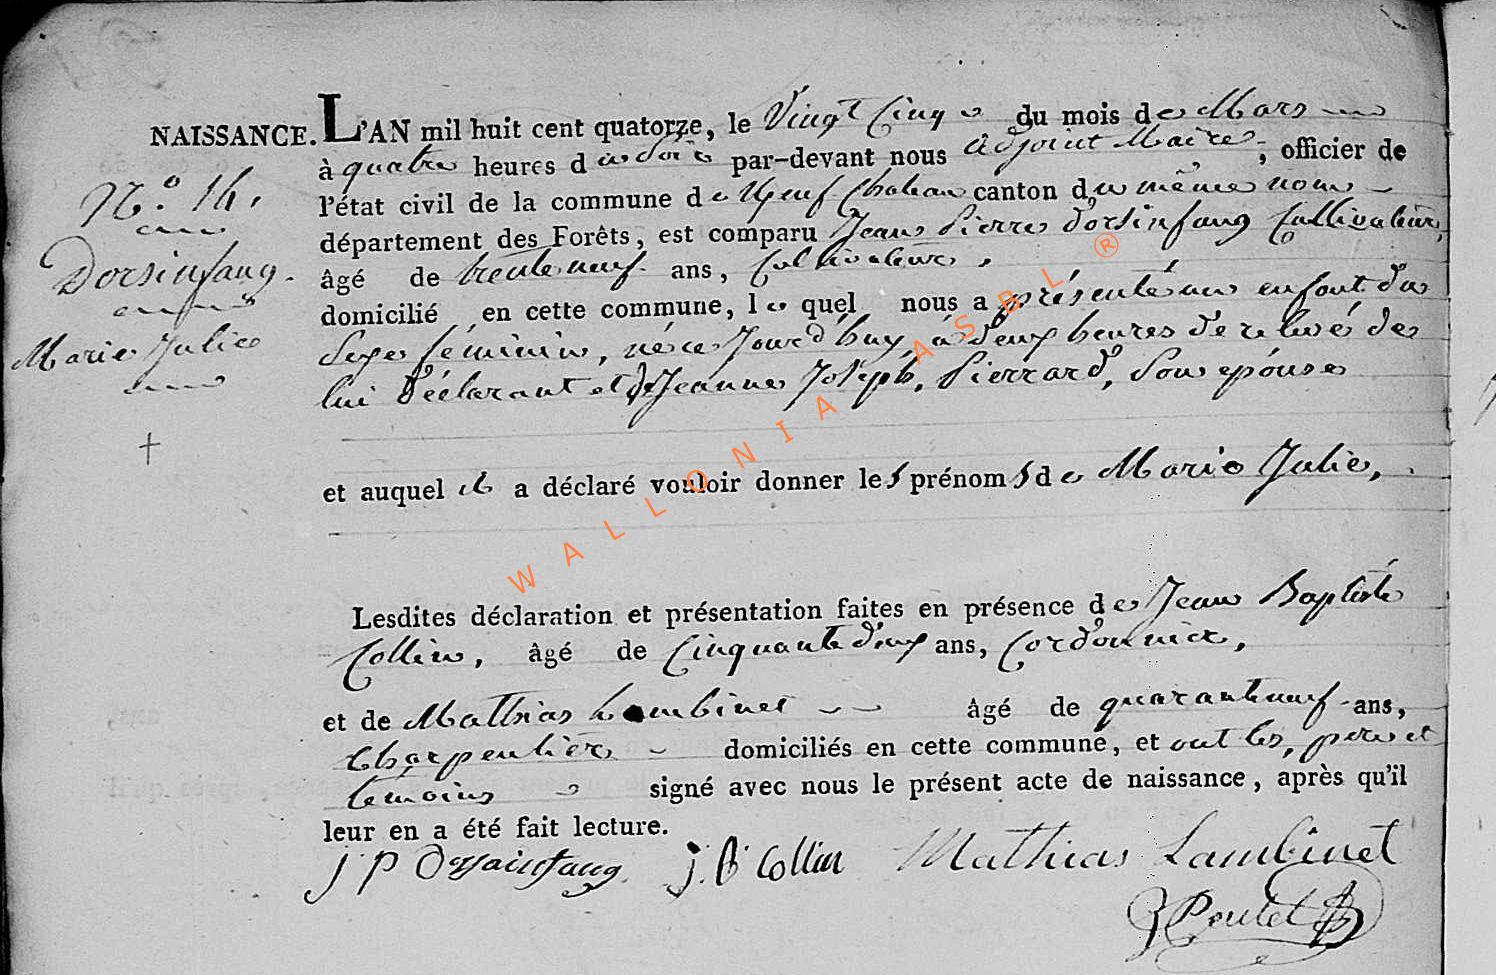 NAISSANCE. L'AN mil huit cent quatorze, le Vingt Cinq du mois de Mars
à quatre heures du Soir par-devant nous adjoint Maire, officier de
l'état civil de la commune de Neufchateau canton du même nom
département des Forêts, est comparu Jean Pierre Dorsinfang Cultivateur,
âgé de trente neuf ans, Cultivateur,
domicilié en cette commune, le quel nous a présenté un enfant du
Sexe féminin, née ce Jourd'huy à deux heures de relevé de
lui déclarant et de Jeanne Joseph Pierrard, Son epouse
et auquel il a déclaré vouloir donner les prénoms de Marie Julie,
Lesdites déclaration et présentation faites en présence de Jean Baptiste
Collin, âgé de Cinquante deux ans, Cordonnier,
et de Mathias Lambinet âgé de quarante neuf ans,
Charpentier domiciliés en cette commune, et ont les père et
temoins signé avec nous le présent acte de naissance, après qu'il
leur en a été fait lecture.
J P Dorsainfang. J. B Collin Mathias Lambinet
Poulet
N.° 14.
Dorsinfang.
Marie Julie
WALLONIA ASBL ®